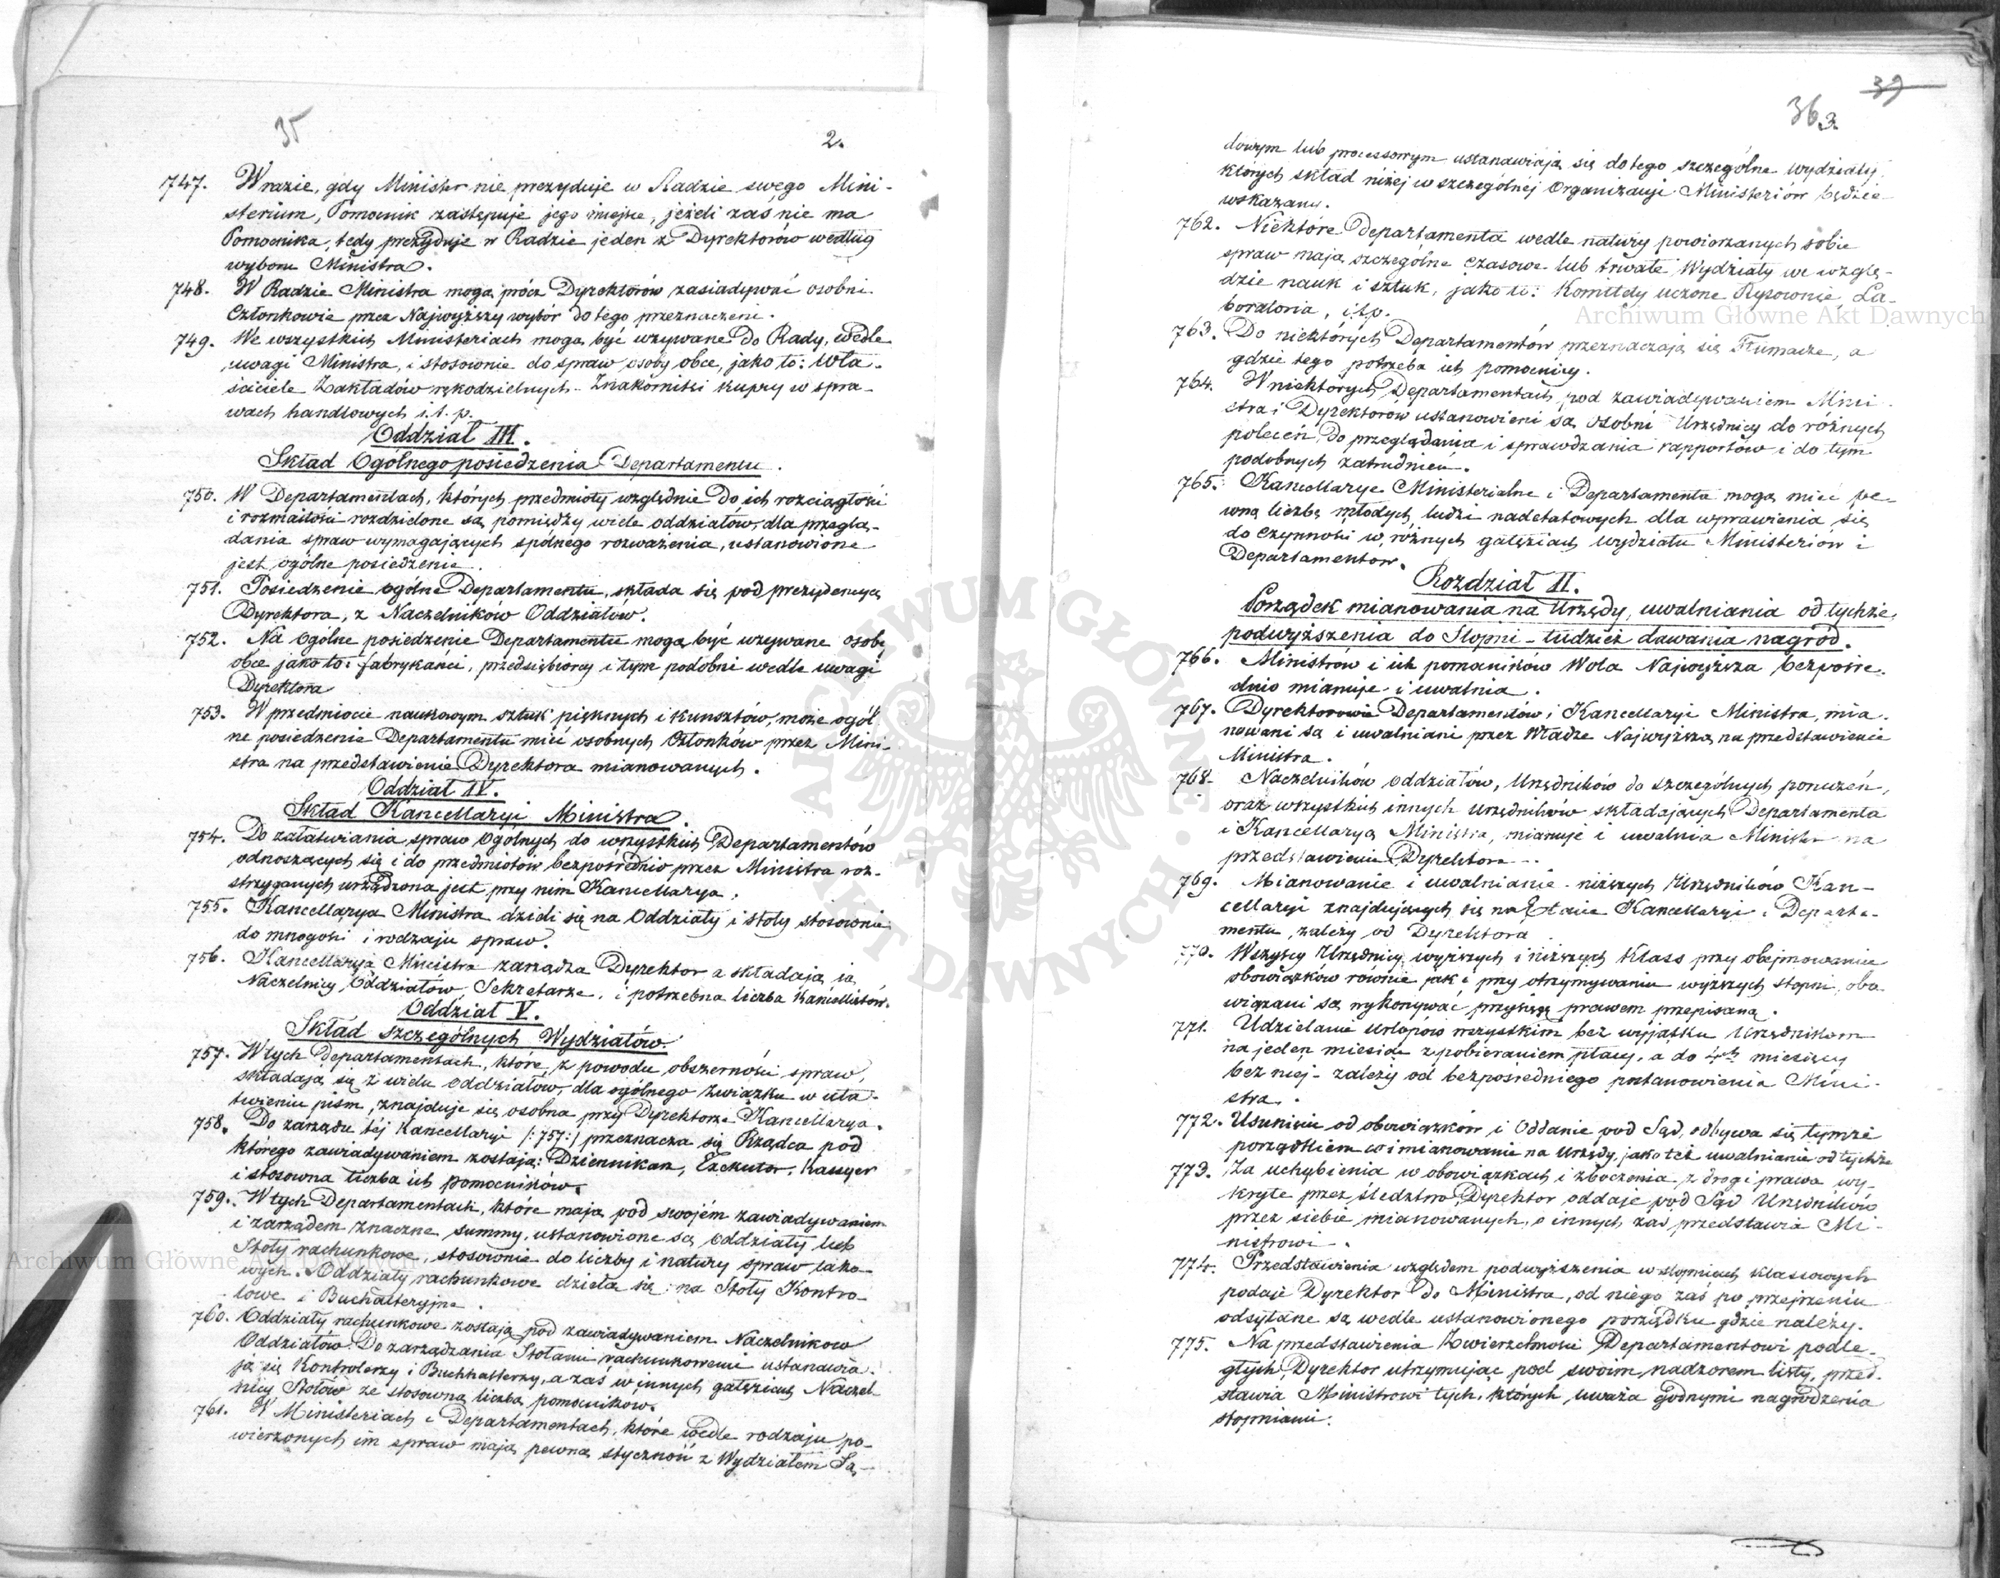 35
2.
747. W razie, gdy Minister nie prezyduje w Radzie swego Mini-
sterium, Pomocnik zastępuje jego miejsce, jeżeli zaś nie ma
Pomocnika, tedy prezyduje w Radzie jeden z Dyrektorów według
wyboru Ministra.
748. W Radzie Ministra mogą prócz Dyrektorów zasiadywać osobni
Członkowie przez Najwyższy wybór do tego przeznaczeni.
749. We wszystkich Ministeriach mogą być wzywane do Rady, wedle
uwagi Ministra, i stosownie do spraw osoby obce, jako to: Wła-
ściciele Zakładów rękodzielnych. Znakomitsi kupcy w spra-
wach handlowych i.t.p.
Oddział III.
Skład Ogólnego posiedzenia Departamentu.
750. W Departamentach, których przedmioty względnie do ich rozciągłości
i rozmaitości rozdzielone są pomiędzy wiele oddziałów, dla przeglą-
dania spraw wymagających spólnego rozważenia, ustanowione
jest ogólne posiedzenie.
751. Posiedzenie ogólne Departamentu, składa się pod prezydencyą
Dyrektora, z Naczelników Oddziałów.
752. Na Ogólne posiedzenie Departamentu mogą być wzywane osoby
obce jako to: fabrykanci, przedsiębiorcy i tym podobni wedle uwagi
Dyrektora
753. W przedmiocie naukowym sztuk pięknych i kunsztów, może ogól-
ne posiedzenie Departamentu mieć osobnych Członków przez Mini-
stra na przedstawienie Dyrektora mianowanych.
Oddział IV.
Skład Kancellaryi Ministra.
754. Do załatwiania spraw Ogólnych do wszystkich Departamentów
odnoszących się i do przedmiotów bezpośrednio przez Ministra roz-
strzyganych urządzona jest przy nim Kancellarya.
755. Kancellarya Ministra dzieli się na Oddziały i stoły stosownie
do mnogości i rodzaju spraw.
756. Kancellaryą Ministra zarządza Dyrektor a składają ią
Naczelnicy Oddziałów, Sekretarze, i potrzebna liczba Kancellistów.
Oddział V.
Skład szczególnych Wydziałów.
757. W tych Departamentach, które, z powodu obszerności spraw,
składają się z wielu oddziałów, dla ogólnego związku w uła-
twieniu pism, znajduje się osobna przy Dyrektorze Kancellarya.
758. Do zarządu tej Kancellaryi /:757:/ przeznacza się Rządca pod
którego zawiadywaniem zostają: Dziennikarz, Exekutor, Kassyer
i stosowna liczba ich pomocników.
759. W tych Departamentach, które mają pod swojém zawiadywaniem
i zarządem znaczne summy, ustanowione są oddziały lub
Stoły rachunkowe, stosownie do liczby i natury spraw tako-
wych. Oddziały rachunkowe dzielą się: na Stoły Kontro-
lowe i Buchalteryjne.
760. Oddziały rachunkowe zostają pod zawiadywaniem Naczelników
Oddziałów. Do zarządzania Stołami rachunkowemi ustanawia-
ją się Kontrolerzy i Buchhalterzy, a zaś w innych gałęziach Naczel-
nicy Stołów ze stosowną liczbą pomocników.
761. W Ministeriach i Departamentach, które wedle rodzaju po-
wierzonych im spraw mają pewną styczność z Wydziałem Są-
39
36
3.
dowym lub processowym ustanawiają się do tego szczególne wydziały
których skład niżej w szczególnej Organizacyi Ministeriów będzie
wskazany.
762. Niektóre Departamenta wedle natury powierzanych sobie
spraw mają szczególne czasowe lub trwałe Wydziały we wzglę-
dzie nauk i sztuk, jako to: Komitety uczone Rysownie, La-
boratoria, i t.p.
763. Do niektórych Departamentów przeznaczają się Tłumacze, a
gdzie tego potrzeba ich pomocnicy.
764. W niektórych Departamentach, pod zawiadywaniem Mini-
stra i Dyrektorów ustanowieni są osobni Urzędnicy do różnych
poleceń, Do przeglądania i sprawdzania rapportów i do tym
podobnych zatrudnień.
765. Kancellarye Ministerialne i Departamenta mogą mieć pe-
wną liczbę młodych ludzi nadetatowych dla wprawienia się
do czynności w różnych gałęziach wydziału Ministeriów i
Departamentów.
Rozdział II.
Porządek mianowania na Urzędy, uwalniania od tychże,
podwyższenia do Stopni - tudzież dawania nagród.
766. Ministrów i ich pomocników Wola Najwyższa bezpośre-
dnio mianuje i uwalnia.
767. Dyrektorowie Departamentów i Kancellaryi Ministra, mia-
nowani są i uwalniani przez Władzę Najwyższą na przedstawienie
Ministra.
768. Naczelników oddziałów, Urzędników do szczególnych poruczeń,
oraz wszystkich innych urzędników składających Departamenta
i Kancellaryą Ministra, mianuje i uwalnia Minister na
przedstawienie Dyrektora.
769. Mianowanie i uwalnianie niższych Urzędników Kan-
cellaryi znajdujących się na Etacie Kancellaryi i Departa-
mentu, zależy od Dyrektora
770. Wszyscy Urzędnicy wyższych i niższych Klass przy obejmowaniu
obowiązków równie jak i przy otrzymywaniu wyższych stopni, obo-
wiązani są wykonywać przysięgę prawem przepisaną.
771. Udzielanie urlopów wszystkim bez wyjątku Urzędnikom
na jeden miesiąc z pobieraniem płacy, a do 4ch miesięcy
bez niej - zależy od bezpośredniego postanowienia Mini-
stra.
772. Usunięcie od obowiązków i Oddanie pod Sąd, odbywa się tymże
porządkiem co i mianowanie na Urzędy, jako też uwalnianie od tychże
773. Za uchybienia w obowiązkach i zboczenia z drogi prawa wy-
kryte przez śledztwo, Dyrektor oddaje pod Sąd Urzędników
przez siebie mianowanych, o innych zaś przedstawia Mi-
nistrowi.
774. Przedstawienia względem podwyższenia w stopniach klassowych
podaje Dyrektor do Ministra, od niego zaś po przejrzeniu
odsyłane są wedle ustanowionego porządku gdzie należy.
775. Na przedstawienia Zwierzchności Departamentowi podle-
głych, Dyrektor utrzymując pod swoim nadzorem listy, przed-
stawia Ministrowi tych, których uważa godnymi nagrodzenia
stopniami.
Archiwum Główne Akt Dawnych
Archiwum Główne Akt Dawnych
ARCHIWUM GŁÓWNE · AKT DAWNYCH ·